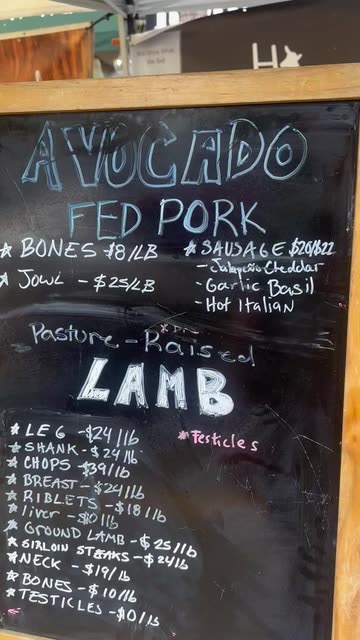 AVOCADO
FED PORK
BONES $8/LB
JOWL - $25/LB
SAUSAGE $20/$22
- Jalapeño Cheddar
- Garlic Basil
- Hot Italian
Pasture-Raised
LAMB
LEG - $24/lb
SHANK - $24/lb
CHOPS $39/lb
BREAST - $24/lb
RIBLETS - $18/lb
liver - $10/lb
GROUND LAMB - $25/lb
SIRLOIN STEAKS - $24lb
NECK - $19/lb
BONES - $10/lb
TESTICLES - $10/lb
Testicles